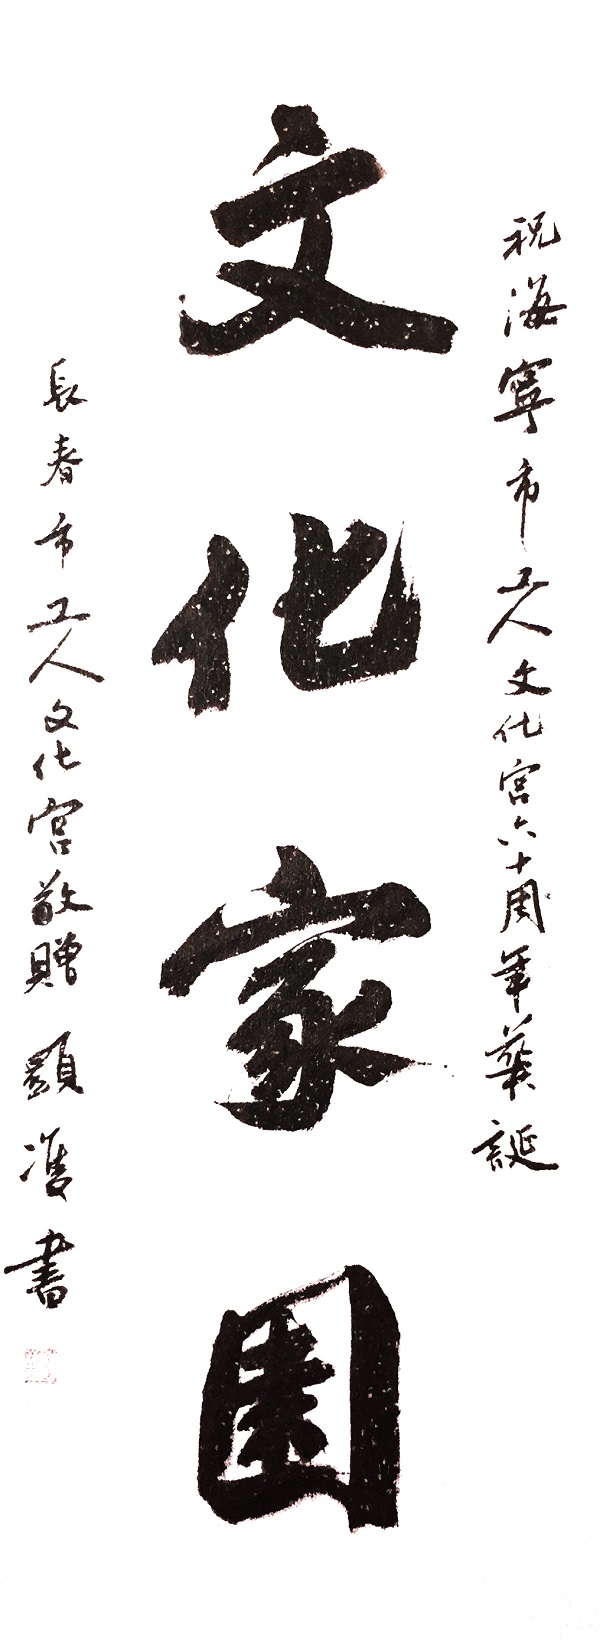 祝海寧市工人文化宮六十周年華誕
文化家園
長春市工人文化宮敬贈 顯凌書